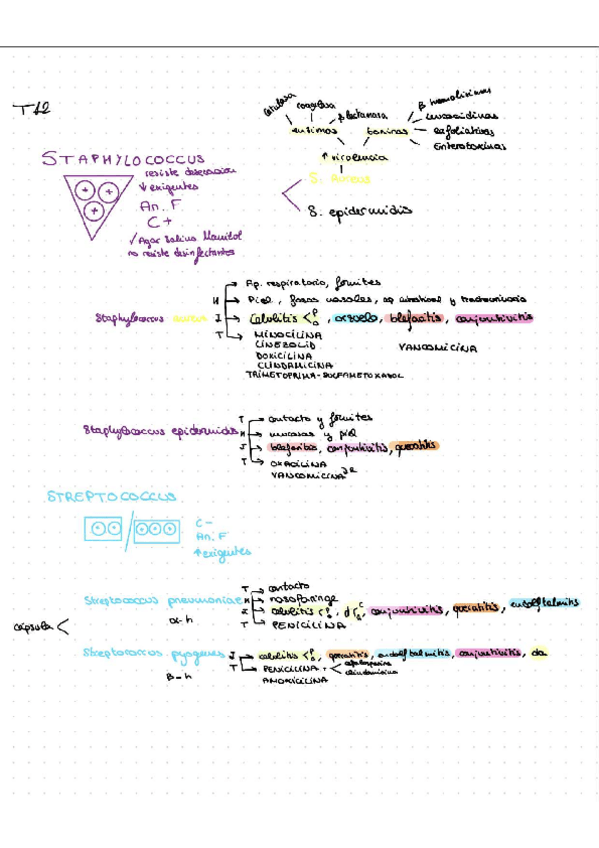 T12
catalasa coagulasa β lactamasa β hemolisinas
leucocidinas
enzimas toxinas exfoliativas
Enterotoxinas
↑ virulencia
STAPHYLOCOCCUS
resiste desecación
↓ exigentes
An. F
C+
✓ Agar Salino Manitol
no resiste desinfectantes
S. Aureus
S. epidermidis
Ap. respiratorio, fomites
H Piel, fosas nasales, ap intestinal y
Staphylococcus aureus I Celulitis < P O, orzuelo, blefaritis, conjuntivitis
T MINOCILINA
LINEZOLID VANCOMICINA
DOXICILINA
CLINDAMICINA
TRIMETOPRIMA-SULFAMETOXAZOL
T contacto y fomites
Staphylococcus epidermidis H mucosas y piel
I blefaritis, conjuntivitis, queratitis
T OXACILINA
VANCOMICINA
STREPTOCOCCUS
C-
An. F
↑ exigentes
T contacto
Streptococcus pneumoniae H nasofaringe
I celulitis < P O, conjuntivitis, queratitis, endoftalmitis
α-h T PENICILINA
cápsula <
Streptococcus pyogenes I celulitis < P O, queratitis, endoftalmitis, conjuntivitis, da
T PENICILINA + < cefalosporina
clindamicina
β-h AMOXICILINA